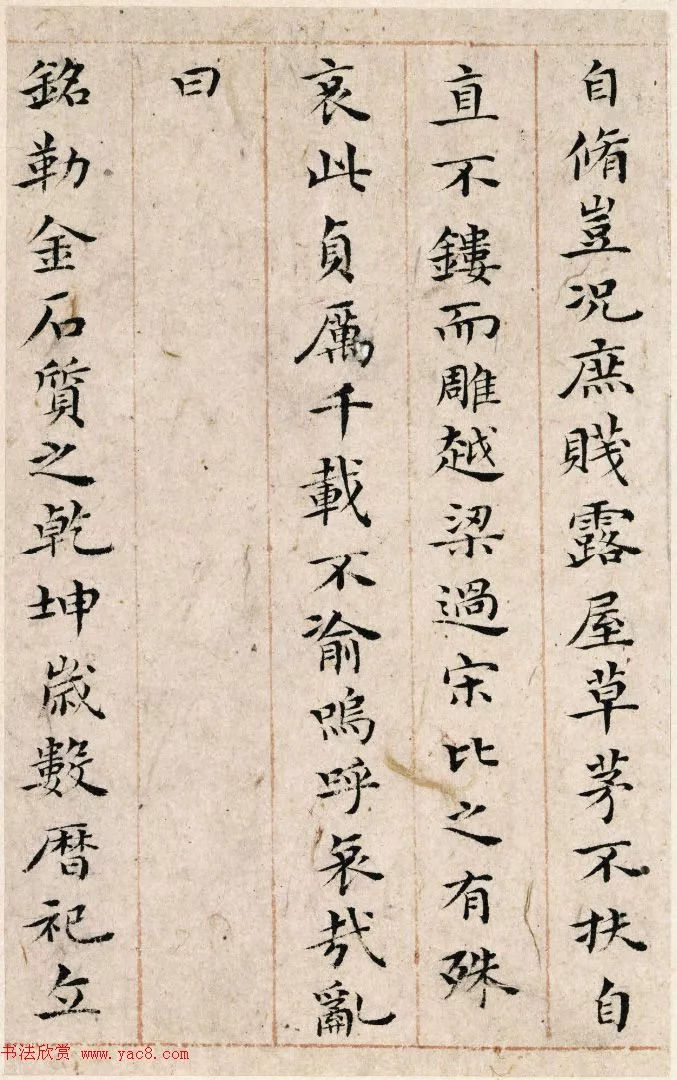 自脩豈況庶賤露屋草茅不扶自
直不鏤而雕越梁過宋比之有殊
哀此貞厲千載不渝嗚呼哀哉亂
曰
銘勒金石質之乾坤歲數曆祀立
书法欣赏 www.yac8.com